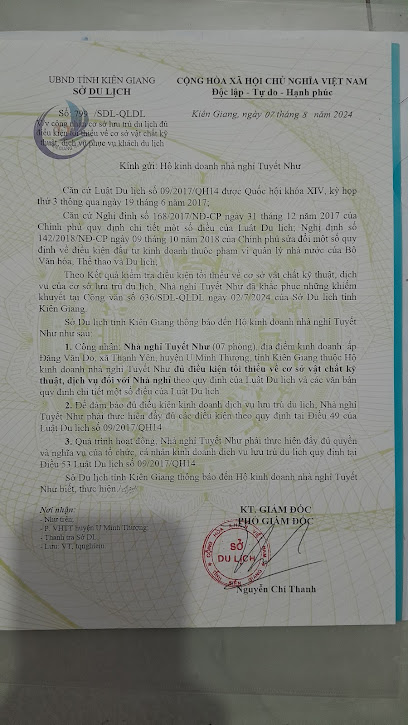 UBND TỈNH KIÊN GIANG
SỞ DU LỊCH
CỘNG HÒA XÃ HỘI CHỦ NGHĨA VIỆT NAM
Độc lập - Tự do - Hạnh phúc
Số: 799 /SDL-QLDL
V/v công nhận cơ sở lưu trú du lịch đủ
điều kiện tối thiểu về cơ sở vật chất kỹ
thuật, dịch vụ phục vụ khách du lịch
Kiên Giang, ngày 07 tháng 8 năm 2024
Kính gửi: Hộ kinh doanh nhà nghỉ Tuyết Như
Căn cứ Luật Du lịch số 09/2017/QH14 được Quốc hội khóa XIV, kỳ họp
thứ 3 thông qua ngày 19 tháng 6 năm 2017;
Căn cứ Nghị định số 168/2017/NĐ-CP ngày 31 tháng 12 năm 2017 của
Chính phủ quy định chi tiết một số điều của Luật Du lịch; Nghị định số
142/2018/NĐ-CP ngày 09 tháng 10 năm 2018 của Chính phủ sửa đổi một số quy
định về điều kiện đầu tư kinh doanh thuộc phạm vi quản lý nhà nước của Bộ
Văn hóa, Thể thao và Du lịch;
Theo Kết quả kiểm tra điều kiện tối thiểu về cơ sở vật chất kỹ thuật, dịch
vụ của cơ sở lưu trú du lịch, Nhà nghỉ Tuyết Như đã khắc phục những khiếm
khuyết tại Công văn số 636/SDL-QLDL ngày 02/7/2024 của Sở Du lịch tỉnh
Kiên Giang.
Sở Du lịch tỉnh Kiên Giang thông báo đến Hộ kinh doanh nhà nghỉ Tuyết
Như như sau:
1. Công nhận: Nhà nghỉ Tuyết Như (07 phòng), địa điểm kinh doanh: ấp
Đặng Văn Do, xã Thạnh Yên, huyện U Minh Thượng, tỉnh Kiên Giang thuộc Hộ
kinh doanh nhà nghỉ Tuyết Như đủ điều kiện tối thiểu về cơ sở vật chất kỹ
thuật, dịch vụ đối với Nhà nghỉ theo quy định của Luật Du lịch và các văn bản
quy định chi tiết một số điều của Luật Du lịch.
2. Để đảm bảo đủ điều kiện kinh doanh dịch vụ lưu trú du lịch, Nhà nghỉ
Tuyết Như phải thực hiện đầy đủ các điều kiện theo quy định tại Điều 49 của
Luật Du lịch số 09/2017/QH14.
3. Quá trình hoạt động, Nhà nghỉ Tuyết Như phải thực hiện đầy đủ quyền
và nghĩa vụ của tổ chức, cá nhân kinh doanh dịch vụ lưu trú du lịch quy định tại
Điều 53 Luật Du lịch số 09/2017/QH14.
Sở Du lịch tỉnh Kiên Giang thông báo đến Hộ kinh doanh nhà nghỉ Tuyết
Như biết, thực hiện.
Nơi nhận:
- Như trên;
- P. VHTT huyện U Minh Thượng;
- Thanh tra Sở DL;
- Lưu: VT,
KT. GIÁM ĐỐC
PHÓ GIÁM ĐỐC
SỞ
DU LỊCH
Nguyễn Chí Thanh